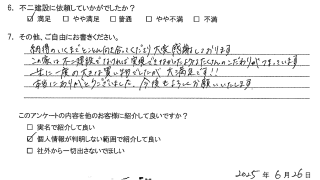 6. 不二建設に依頼していかがでしたか？
☑ 満足 □ やや満足 □ 普通 □ やや不満 □ 不満
7. その他、ご自由にお書きください。
納得のいくまでとことん向き合ってくださり大変感謝しております
この家は不二建設でなければ実現できなかったようなたくさんのこだわりがつまっています
一生に一度の大きな買い物でしたが大満足です!!
本当にありがとうございました。今後もよろしくお願いいたします
このアンケートの内容を他のお客様に紹介して良いですか？
□ 実名で紹介して良い
☑ 個人情報が判明しない範囲で紹介して良い
□ 社外から一切出さないでほしい
2025年6月26日